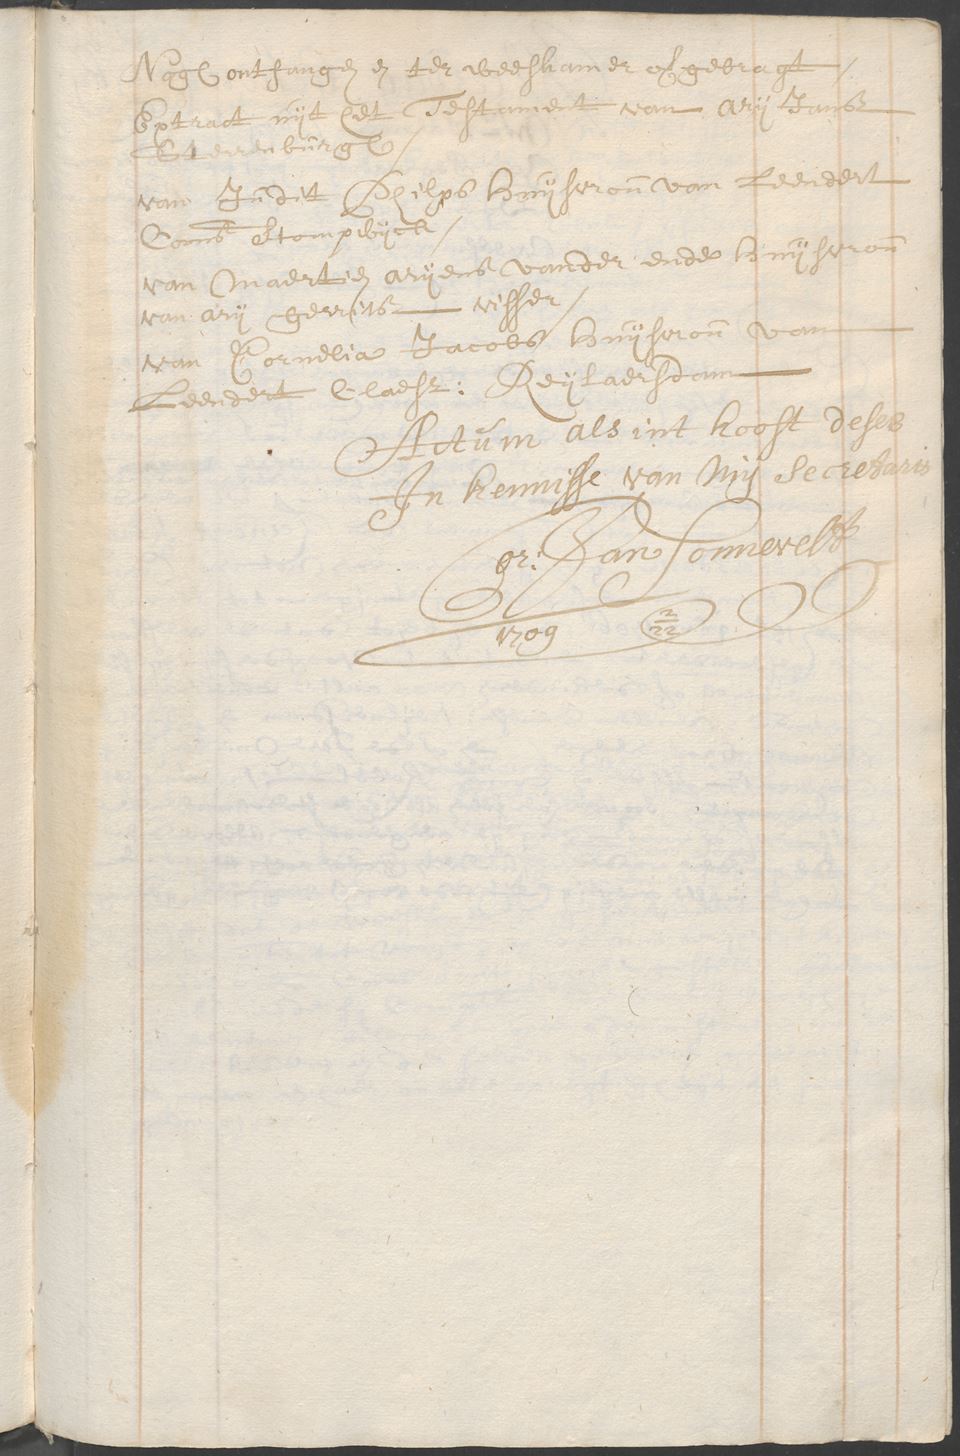 Nogh ontfangen en ter weeskamer ofgebragt /
Extract uijt het Testament van arij Jans
Sterrenburgh /
van Judit Philps huijsvrou van Leendert
Corns Stompwijck /
van Maertie arijens vander ende huijsvrou
van arij gerrits visser /
van Cornelia Jacobs huijsvrou van
Leendert Claesz: Reijlaersdam
Actum als int hooft deses
In kennisse van Mij Secretaris
gr: Jan Sonnevelt
1709 2/22